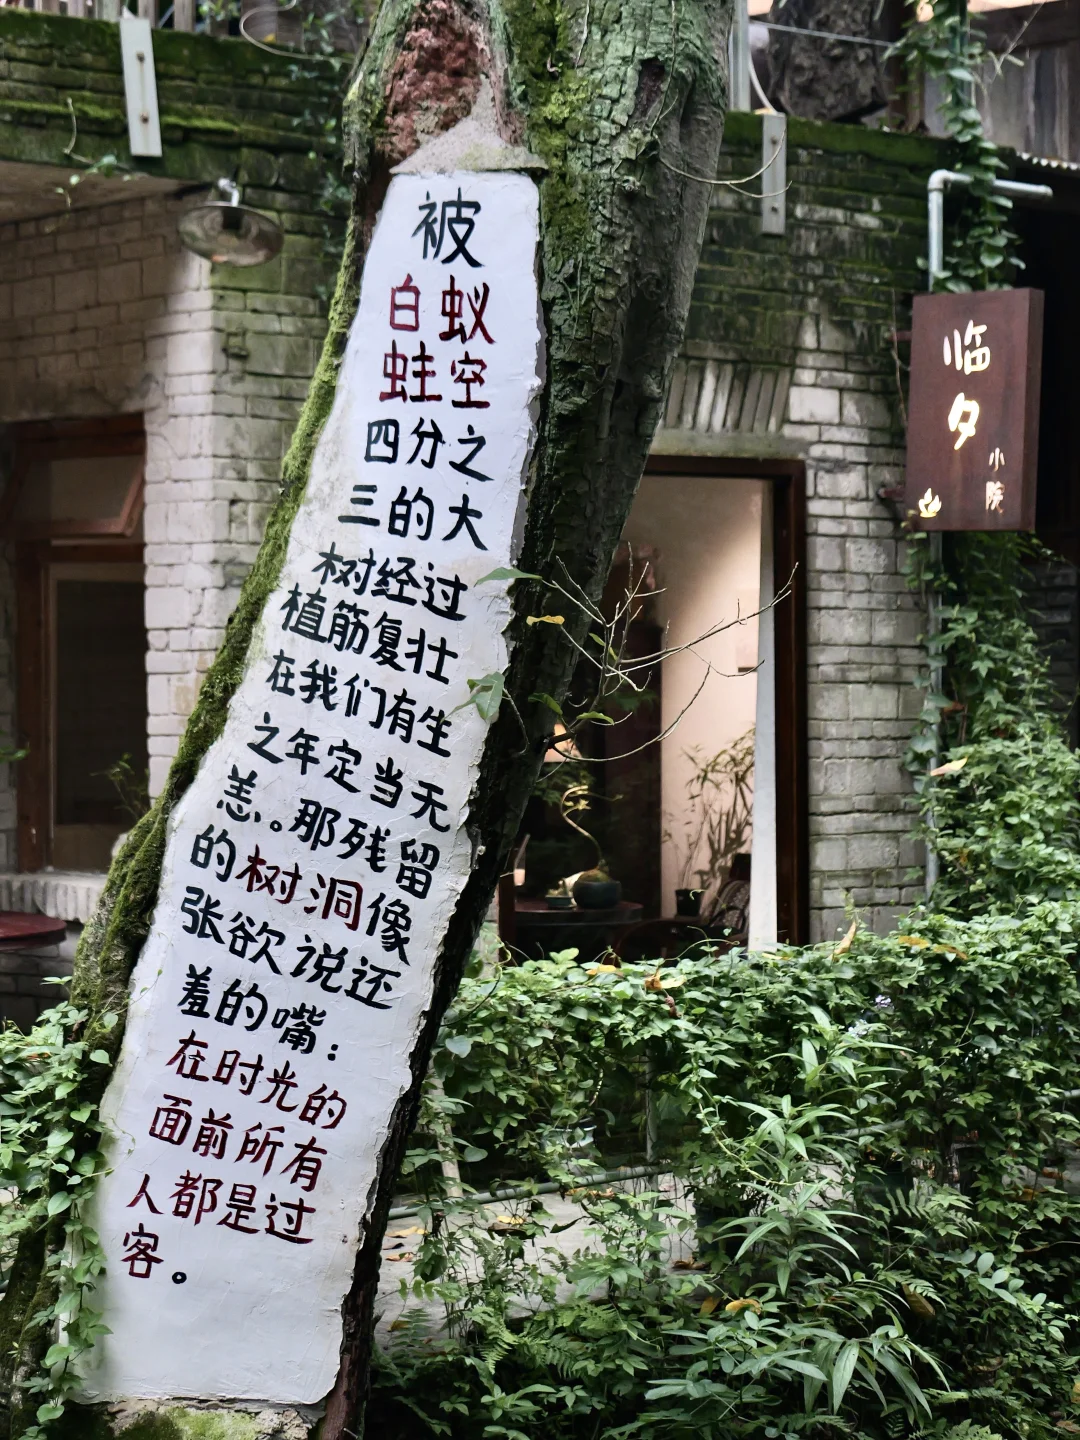 被
白蚁
蛀空
四分之
三的大
树经过
植筋复壮
在我们有生
之年定当无
恙。那残留
的树洞像
张欲说还
羞的嘴：
在时光的
面前所有
人都是过
客。
临夕
小院